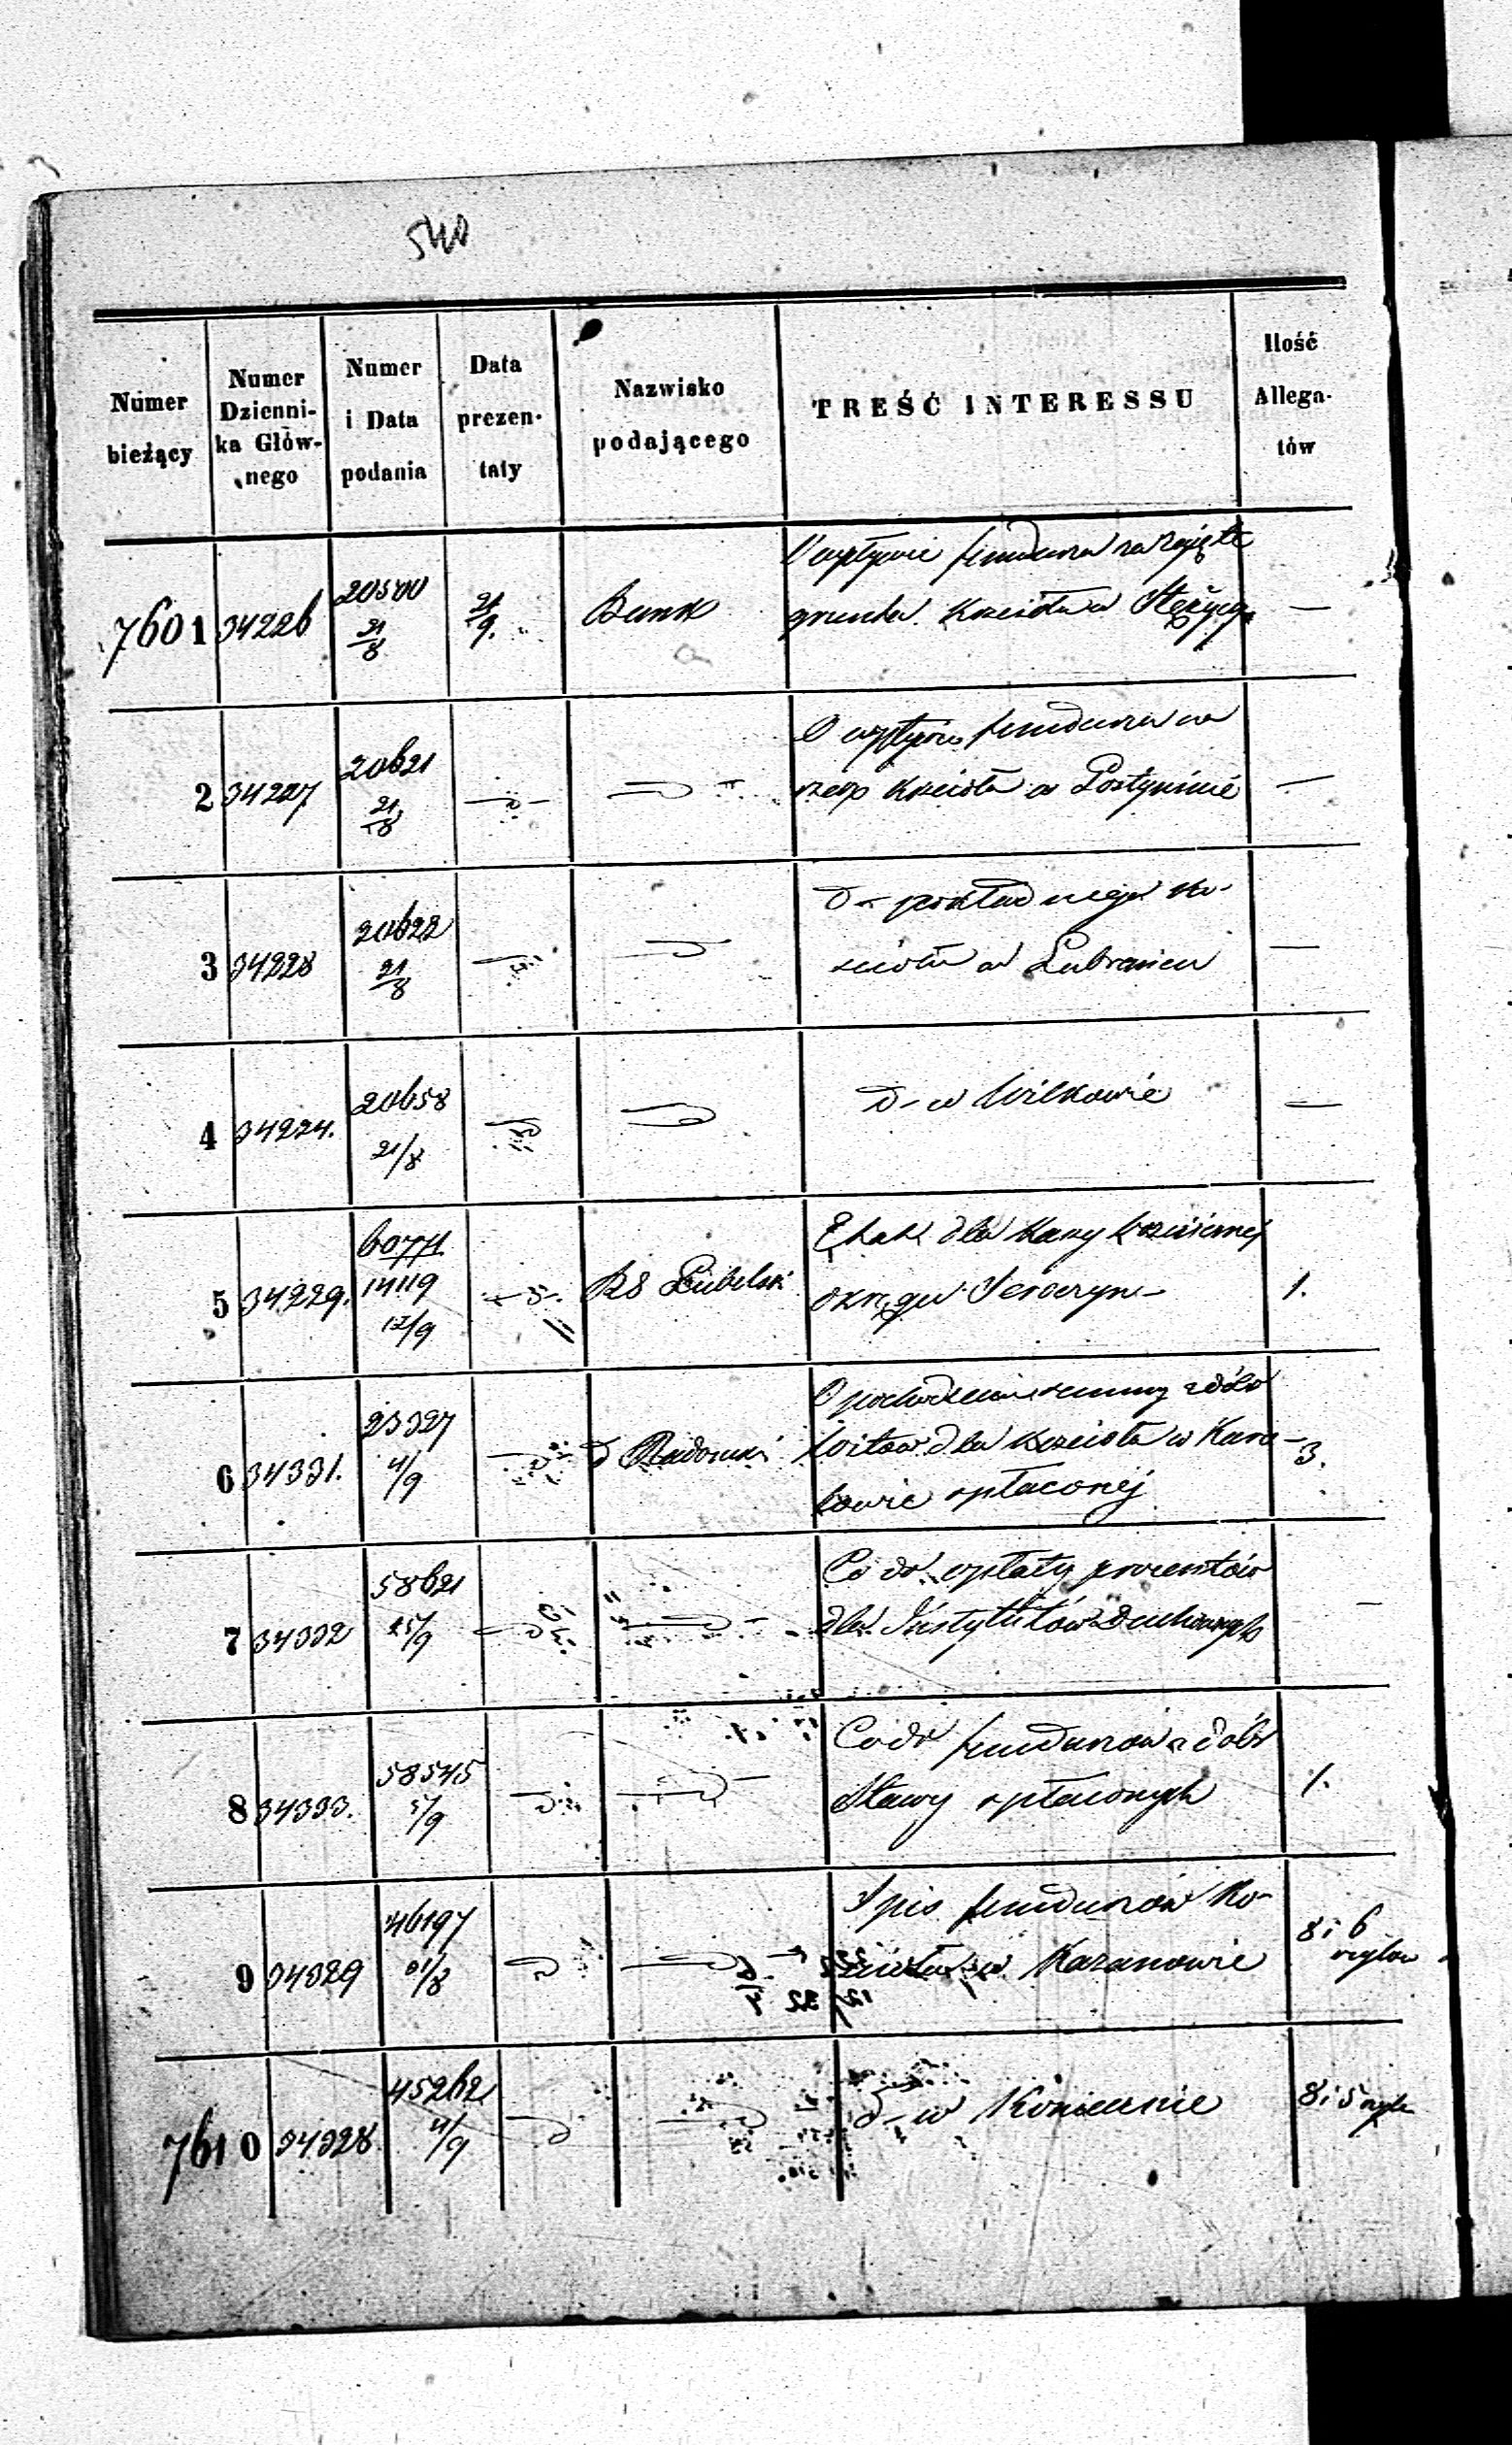 540
Numer bieżący
Numer Dzienni-ka Głów-nego
Numer i Data podania
Data prezen-taty
Nazwisko podającego
TREŚĆ INTERESSU
Ilość Allega-tów
7601 34226 20500 21/8 21/9. Bank
O wpływie funduszu za zajęte
grunta Kościoła w Stężycy —
2 34227 20621 21/8
O wpływie funduszu na
rzecz Kościoła w Postyninie —
3 34228 20622 21/8
d- poklad nego Ko-
ścioła w Lubranicu —
4 34224. 20658 21/8
d- w Wilkowie —
5 34229. 60774 14119 12/9 RG Lubelski
Etat dla Kassy
okręgu Seroczyn- 1.
6 34331. 23327 4/9 d Radomski
O pochodzeniu summy z dóbr
Witów dla Kościoła w
opłaconej 3.
7 34332 58621 25/9
Co do opłaty procentów
dla Instytutów Duchownych —
8 34333. 58545 5/9
Co do funduszów z dóbr
Sławy opłaconych 1.
9 34329 46197 31/8
Spis funduszów Ko-
ścioła w Kazanowie 8 i 6
7610 34328 45262 4/9
d- w Koniecznie 8 i 5